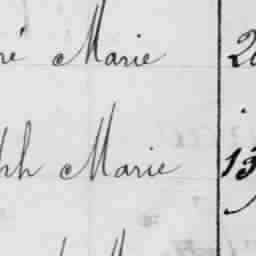 ré Marie 2
ph Marie 13